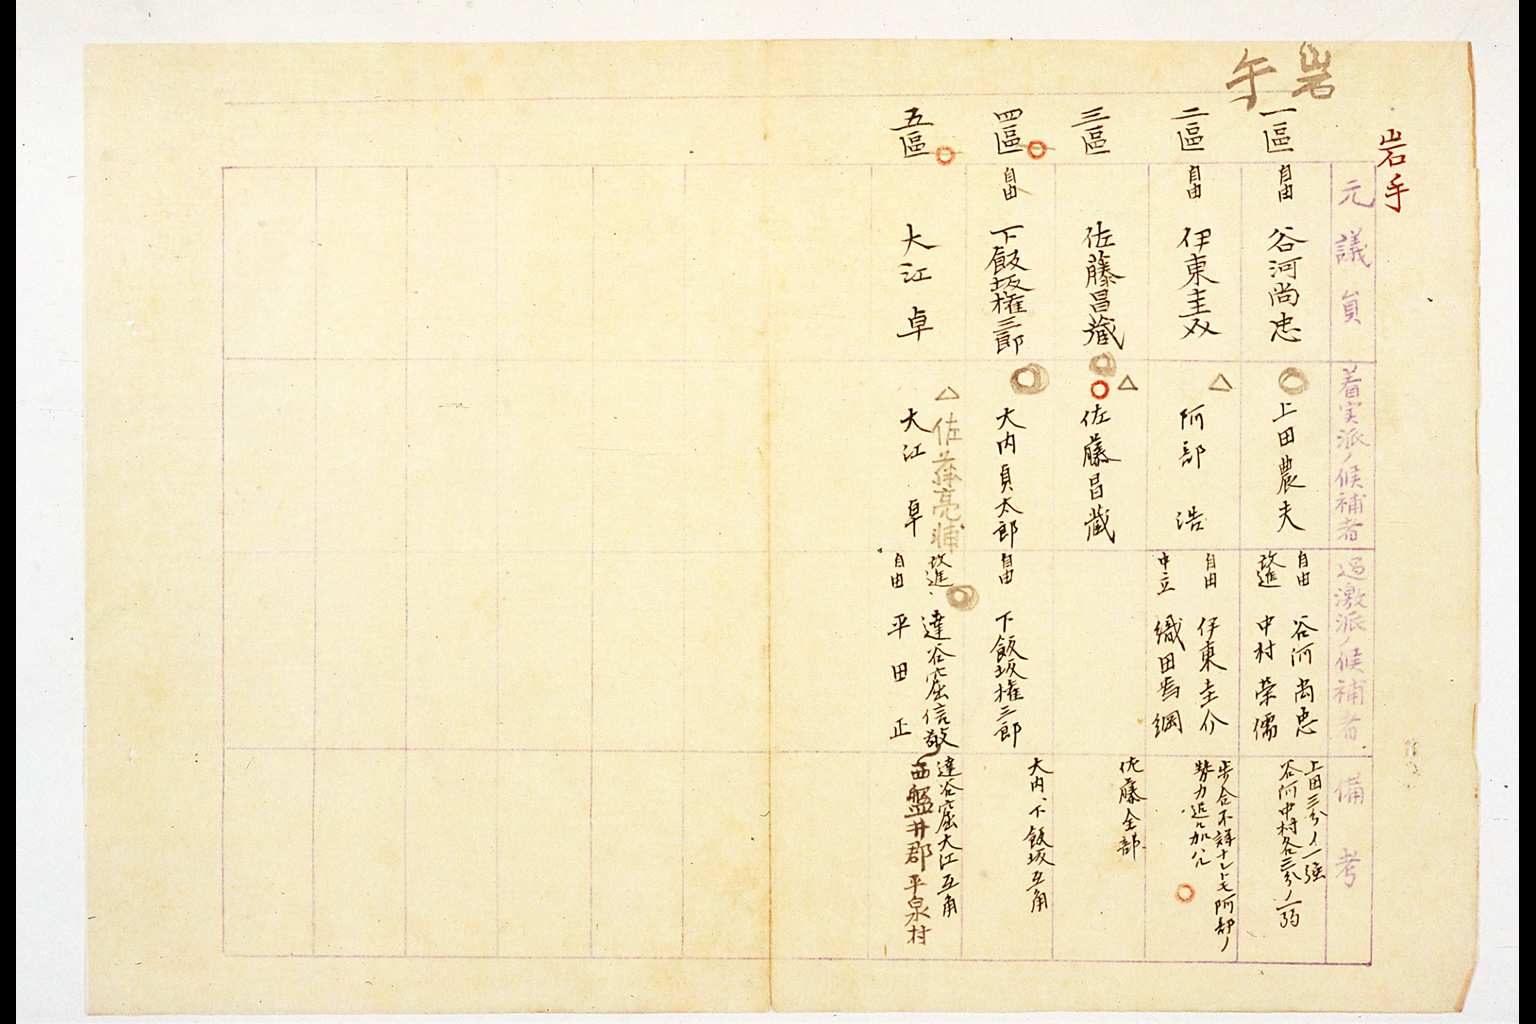 岩手
岩手
元議員
着実派ノ候補者
過激派ノ候補者
備考
一區
自由 谷河尚忠
上田農夫
自由 谷河尚忠
改進 中村栄儒
上田三分ノ一強
谷河中村各三分ノ一弱
二區
自由 伊東圭介
阿部浩
自由 伊東圭介
中立 織田為綱
歩合不詳ナレトモ阿部ノ
勢力追々加ハル
三區
佐藤昌蔵
佐藤昌蔵
佐藤全部
四區
自由 下飯坂権三郎
大内貞太郎
自由 下飯坂権三郎
大内、下飯坂互角
五區
大江卓
佐藤亮輔
大江卓
改進 達谷窟信敬
自由 平田正
達谷窟大江互角
西盤井郡平泉村